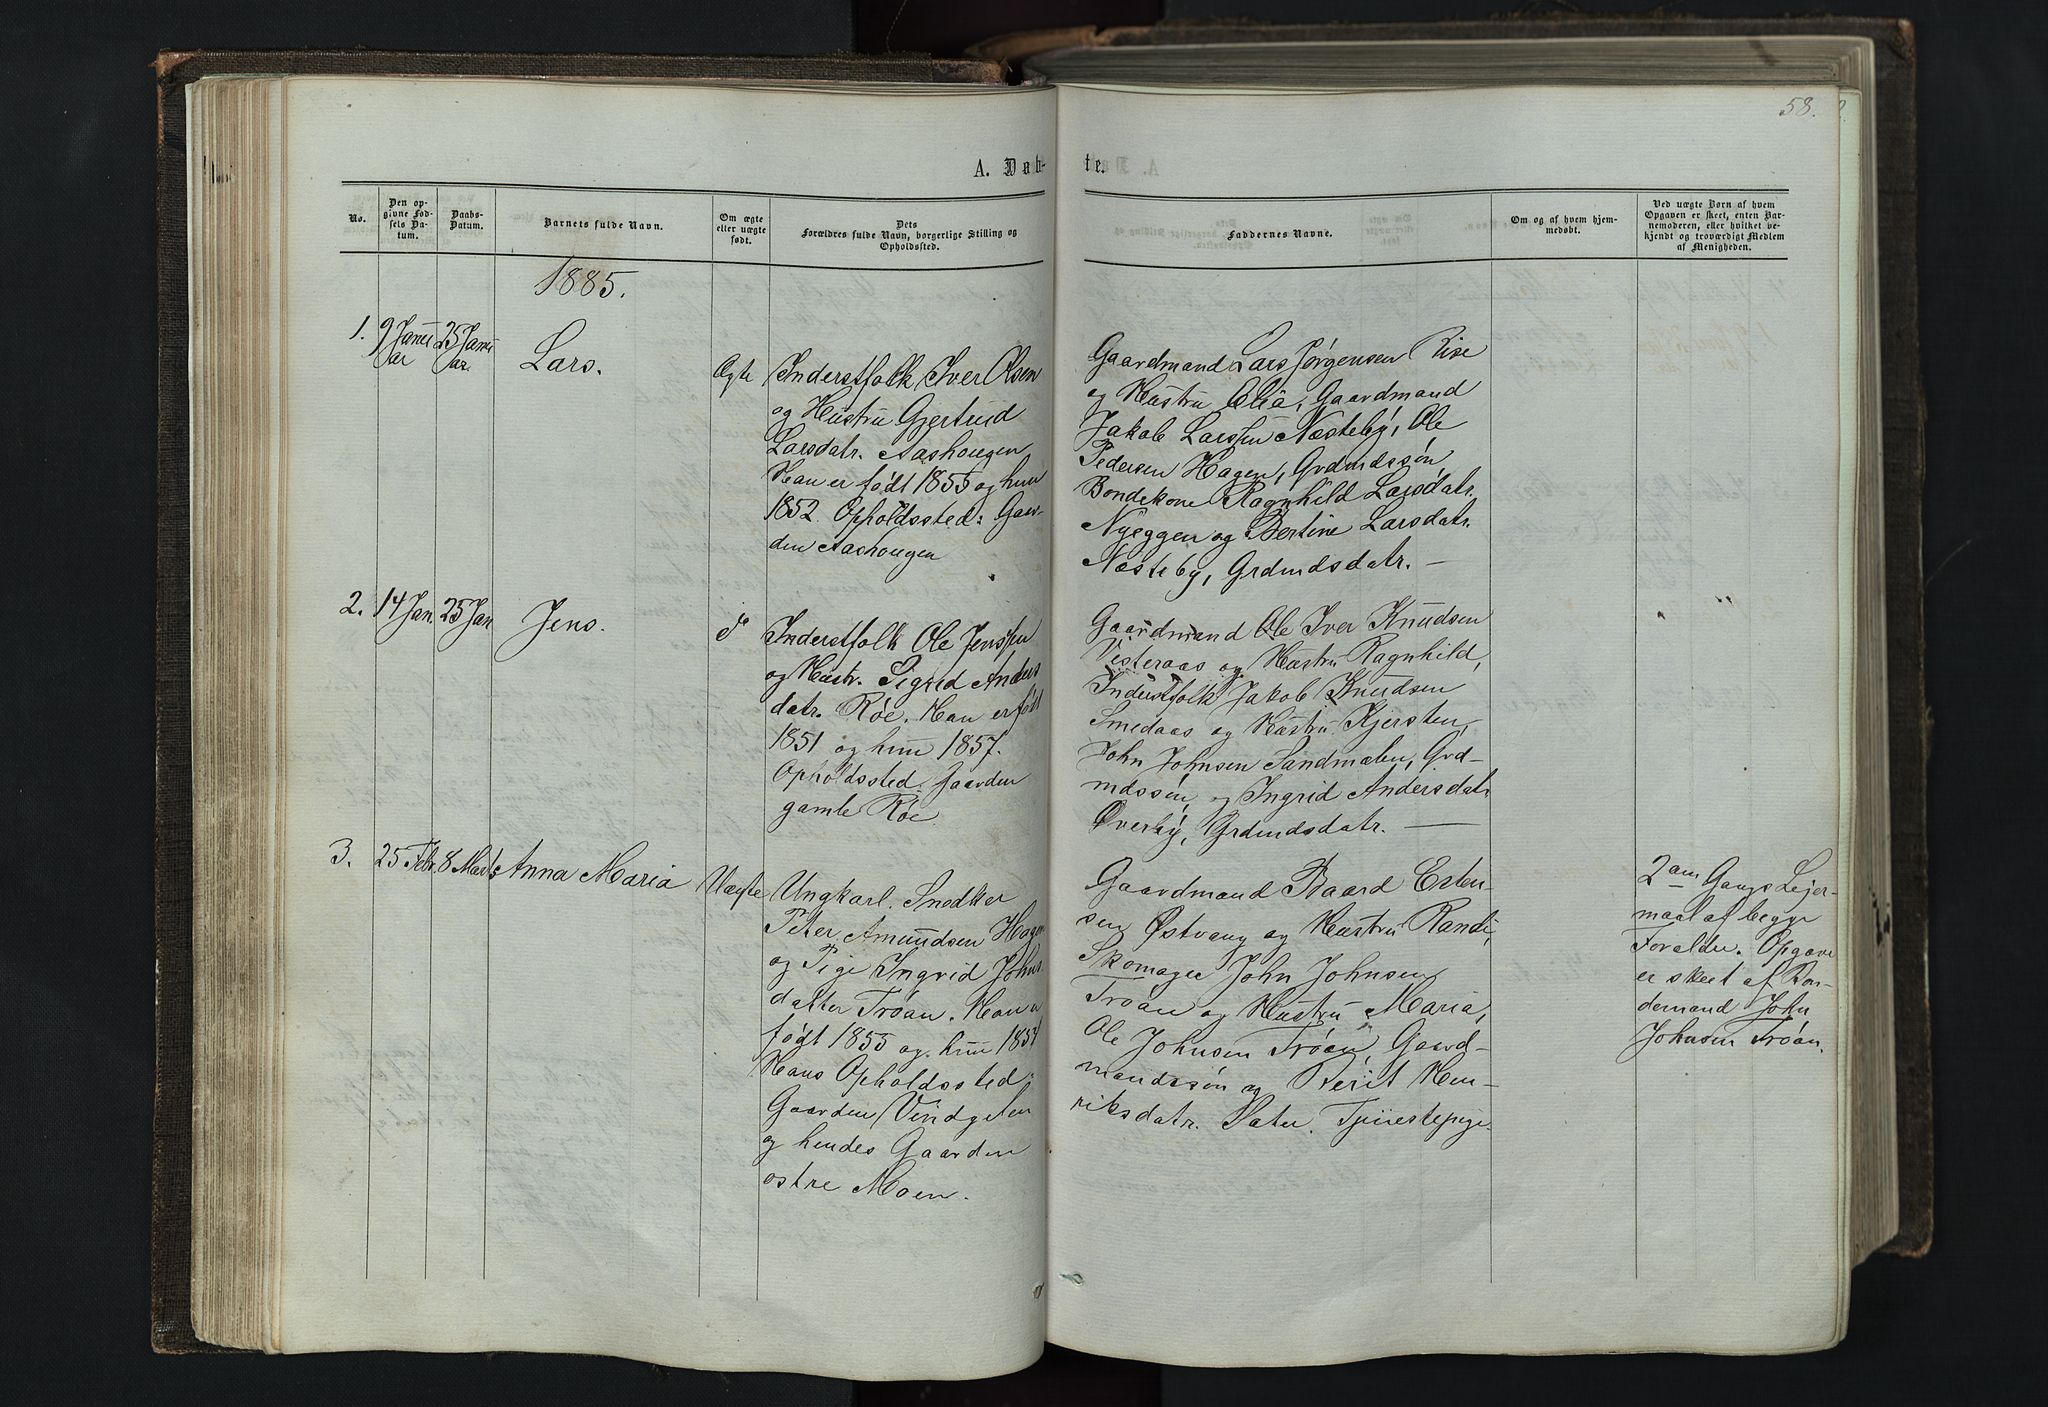 58.
A. Døb-
te.
No.
Den op-
givne Fød-
sels Da-
tum.
Daabs-
Datum.
Barnets fulde Navn.
Om ægte
eller uægte
født.
Dets
Forældres fulde Navn, borgerlige Stilling og
Opholdssted.
Faddernes Navne.
Om og af hvem hjem-
medøbt.
Ved uægte Børn af hvem
Opgaven er skeet, enten Bar-
nemoderen, eller hvilket be-
kjendt og troværdigt Medlem
af Menigheden.
1885.
1.
9 Janu
ar
25 Janu
ar.
Lars.
Ægte
Inderstfolk Iver Olsen
og Hustru Gjertrud
Larsdatr. Aashougen
Han er født 1855 og hun
1852. Opholdssted: Gaar-
den Aashougen
Gaardmand Lars Jørgensen Rise
og Hustru Elia, Gaardmand
Jakob Larssen Næsteby, Ole
Pedersen Hagen, Grdmdssøn,
Bondekone Ragnhild Larsdatr.
Nyeggen og Bertine Larsdatr.
Næsteby, Grdmdsdatr. —
2.
14 Jan.
25 Jan
Jens.
do
Inderstfolk Ole Jenssen
og Hustr. Sigrid Anders
datr. Røe. Han er født
1851 og hun 1857.
Opholdssted: Gaarden
gamle Røe
Gaardmand Ole Iver Knudsen
Vesteraas og Hustru Ragnhild,
Inderstfolk Jakob Knudsen
Smedaas og Hustru Kjersten,
John Johnsen Sandmælen, Grd-
mdssøn, og Ingrid Andersdatr
Øverby, Grdmdsdatr. —
3.
25 Febr.
8 Marts
Anna Maria
Uægte
Ungkarl. Snedker
Peter Amundsen Hagen
og Pige Ingrid Johns
datter Trøan. Han er
født 1855 og hun 185
Hans Opholdssted:
Gaarden Vindgelen
og hendes Gaarden
østre Moen.
Gaardmand Baard Esten-
sen Østvang og Hustru Randi,
Skomager John Johnsen
Trøan og Hustru Maria,
Ole Johnsen Trøan, Gaard-
mandssøn og Berit Hen-
riksdatr. Sater. Tjenestepige.
2den Gangs Lejer-
maal af begge
Forældre. Opgave
er skeet af Bon-
demand John
Johnsen Trøan.